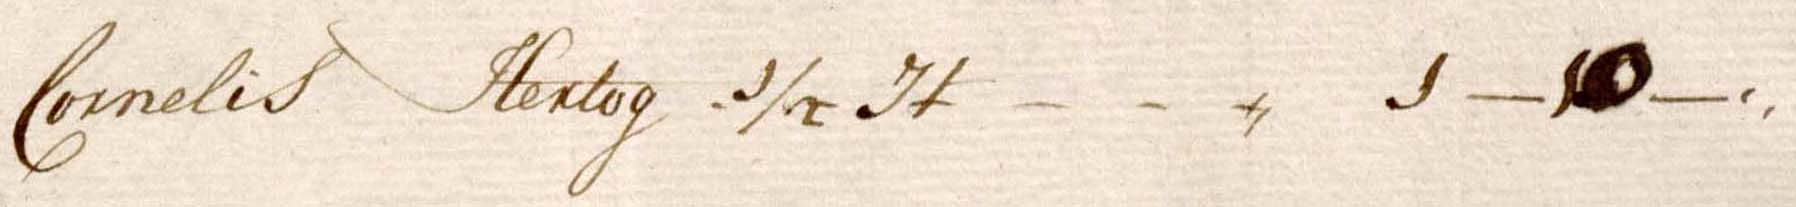 Cornelis Hertog 1/2 H - - - „ 1 — 10 — „